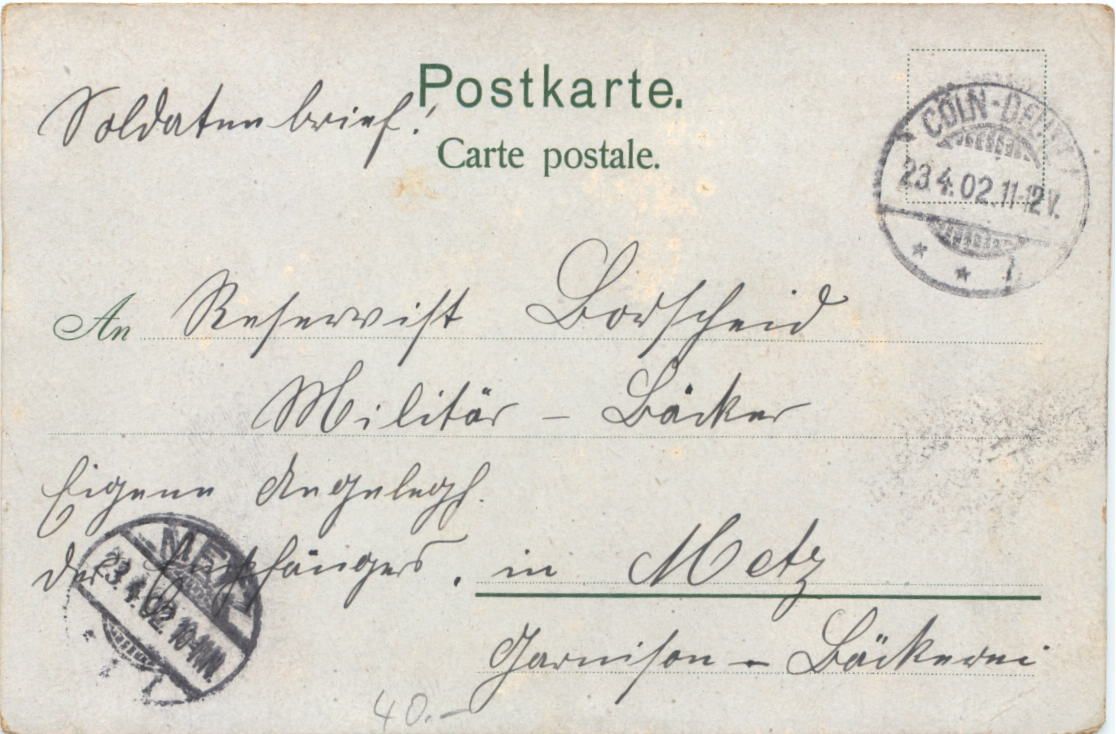 Postkarte.
Soldatenbrief!
Carte postale.
CÖLN-DEUTZ
23.4.02.11-12V.
An Reservist Borscheid
Militär - Bäcker
Eigene Angelegh.
des Empfängers.
in Metz
Garnison - Bäckerei
METZ
23.4.02.10-11N.
1
40.-